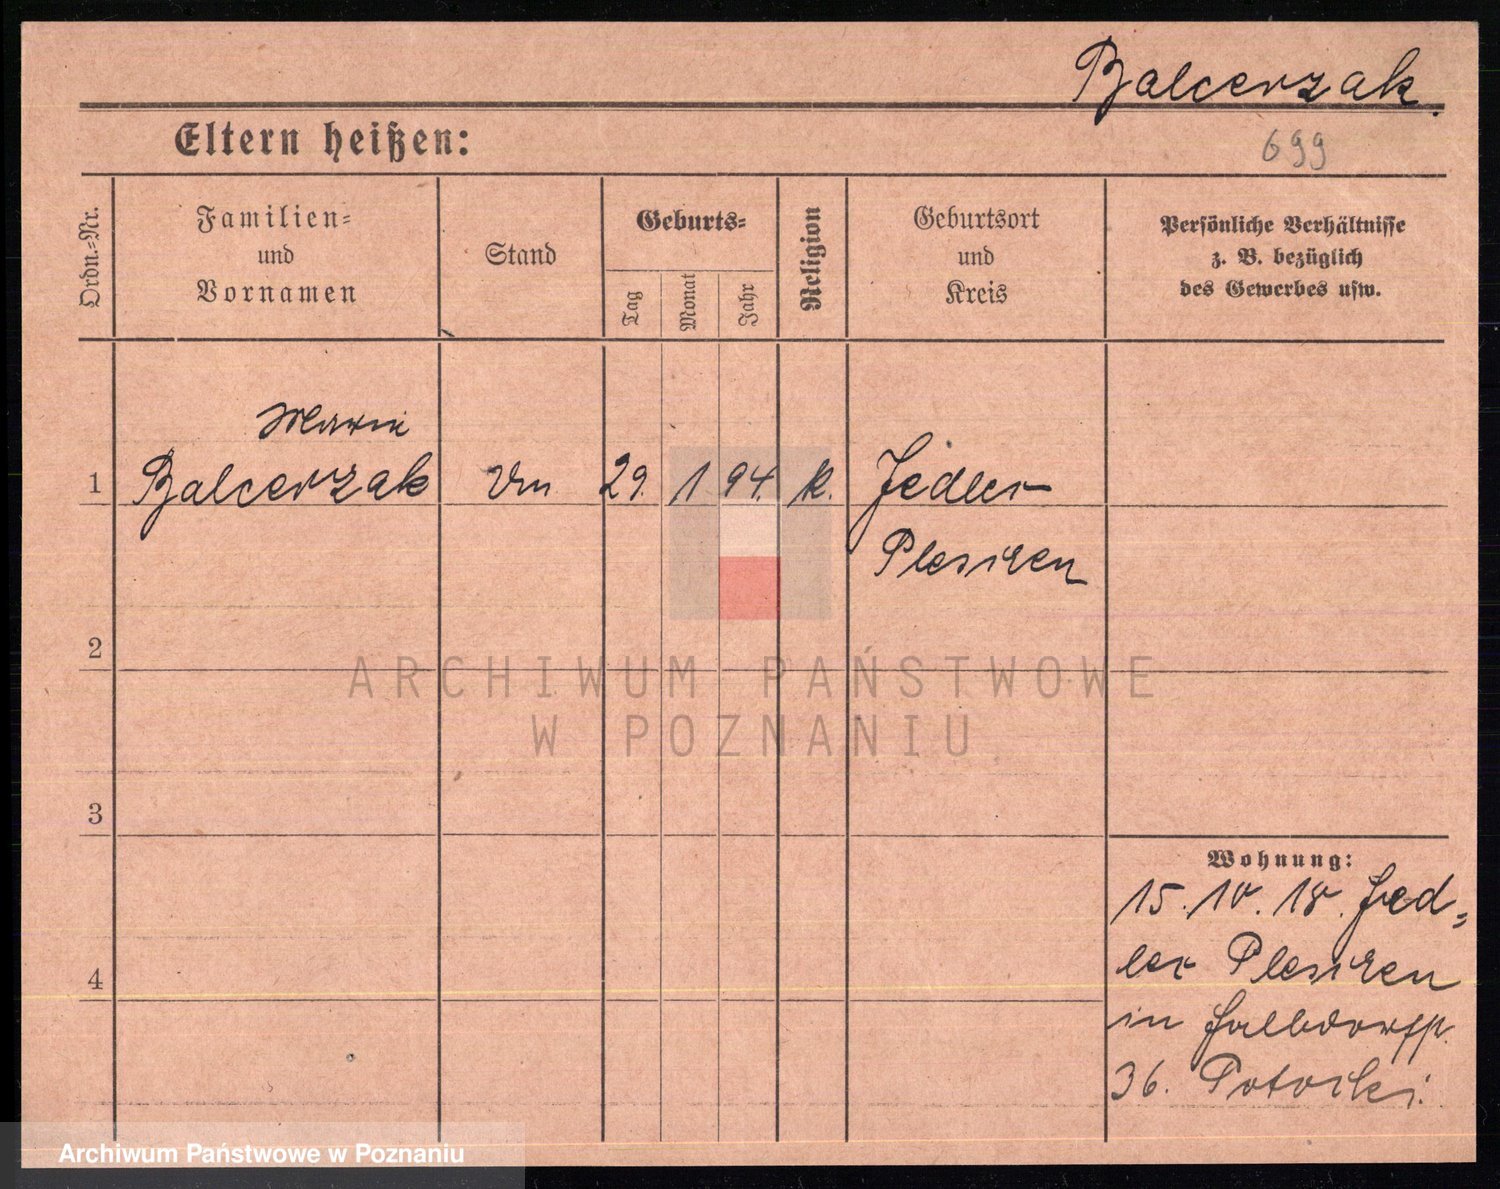 Balcerzak.
Eltern heißen:
699
Ordn.=Nr.
Familien=
und
Vornamen
Stand
Geburts=
Tag
Monat
Jahr
Religion
Geburtsort
und
Kreis
Persönliche Verhältnisse
z. B. bezüglich
des Gewerbes usw.
Marie
1 Balcerzak 29. 1 94. k. Jedlec
Pleschen
2
3
4
Wohnung:
15. 10. 18. Jed=
lec Pleschen
in Halbdorfstr.
36. Potocki.
ARCHIWUM PAŃSTWOWE
W POZNANIU
Archiwum Państwowe w Poznaniu